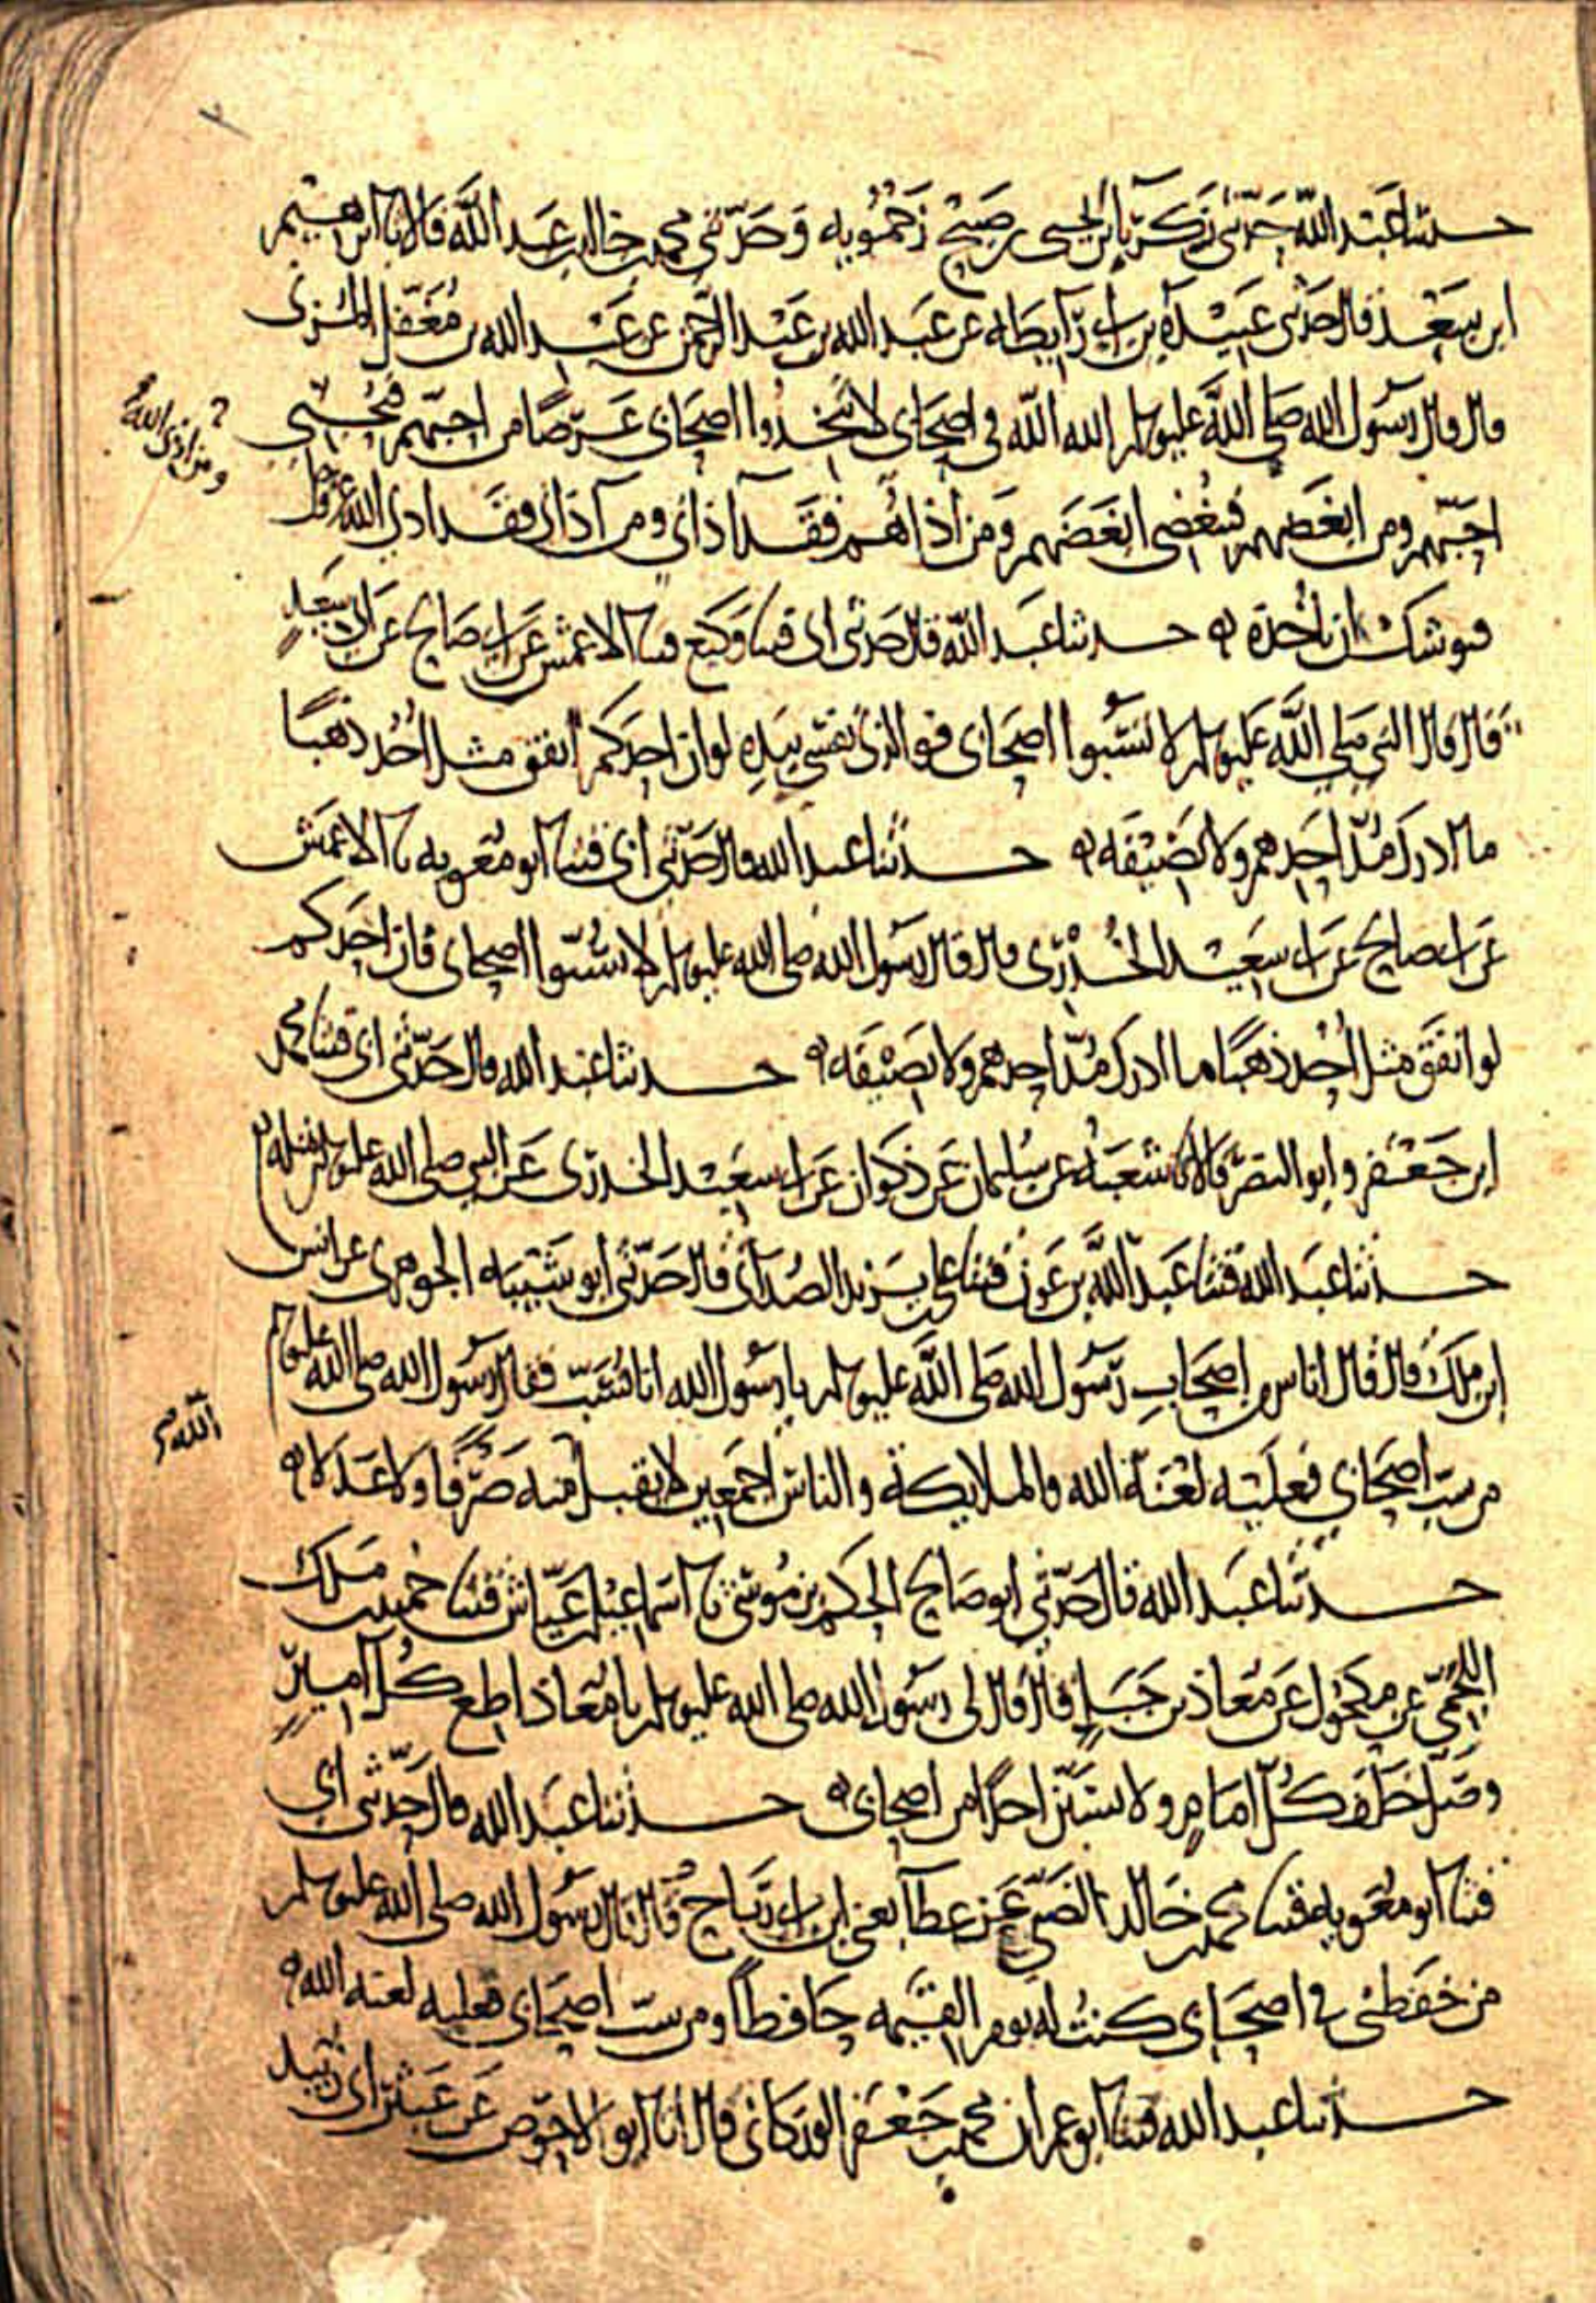 حدثنا عبد الله حدثني زكريا بن يحيى بن صبيح زحمويه وحدثني محمد بن خالد بن عبد الله قالا نا ابرهيم
ابن سعد قال حدثني عبيدة بن ابي رايطه عن عبد الله بن عبد الرحمن عن عبد الله بن مغفل المزني
قال قال رسول الله صلى الله عليه وسلم الله الله في اصحابي لا تتخذوا اصحابي غرضا من احبهم فبحبي
احبهم ومن ابغضهم فببغضي ابغضهم ومن اذاهم فقد آذاني ومن آذاني فقد اذى الله عز وجل
ومن اذى الله
فيوشك ان ياخذه ه حدثنا عبد الله قال حدثني ابي قثنا وكيع قثنا الاعمش عن ابي صالح عن ابي سعيد
قال قال النبي صلى الله عليه وسلم لا تسبوا اصحابي فو الذي نفسي بيده لو ان احدكم انفق مثل احد ذهبا
ما ادرك مد احدهم ولا نصيفه ه حدثنا عبد الله قال حدثني ابي قثنا ابو معويه نا الاعمش
عن ابي صالح عن ابي سعيد الخدري قال قال رسول الله صلى الله عليه وسلم لا تسبوا اصحابي فان احدكم
لو انفق مثل احد ذهبا ما ادرك مد احدهم ولا نصيفه ه حدثنا عبد الله قال حدثني ابي قثنا محمد
ابن جعفر وابو النضر قالا نا شعبه عن سليمان عن ذكوان عن ابي سعيد الخدري عن النبي صلى الله عليه وسلم مثله ه
حدثنا عبد الله قثنا عبد الله بن عون قثنا علي بن يزيد الصدائي قال حدثني ابو شيبه الجوهري عن انس
ابن ملك قال قال اناس من اصحاب رسول الله صلى الله عليه وسلم يا رسول الله انا نسب فقال رسول الله صلى الله عليه وسلم
من سب اصحابي فعليه لعنة الله والملايكة والناس اجمعين لا يقبل الله منه صرفا ولا عدلا ه
حدثنا عبد الله قال حدثني ابو صالح الحكم بن موسى نا اسماعيل بن عياش قثنا حميد بن ملك
اللخمي عن مكحول عن معاذ بن جبل قال قال لي رسول الله صلى الله عليه وسلم يا معاذ اطع كل امير
وصل خلف كل امام ولا تسبن احدا من اصحابي ه حدثنا عبد الله قال حدثني ابي
قثنا ابو معويه قثنا محمد بن خالد الضبي عن عطآ يعني ابن ابي رباح قال قال رسول الله صلى الله عليه وسلم
من حفظني في اصحابي كنت له يوم القيمه حافظا ومن سب اصحابي فعليه لعنه الله ه
حدثنا عبد الله قثنا ابو عمران محمد بن جعفر الوركاني قال انا ابو الاحوص عن عبثر ابي زبيد